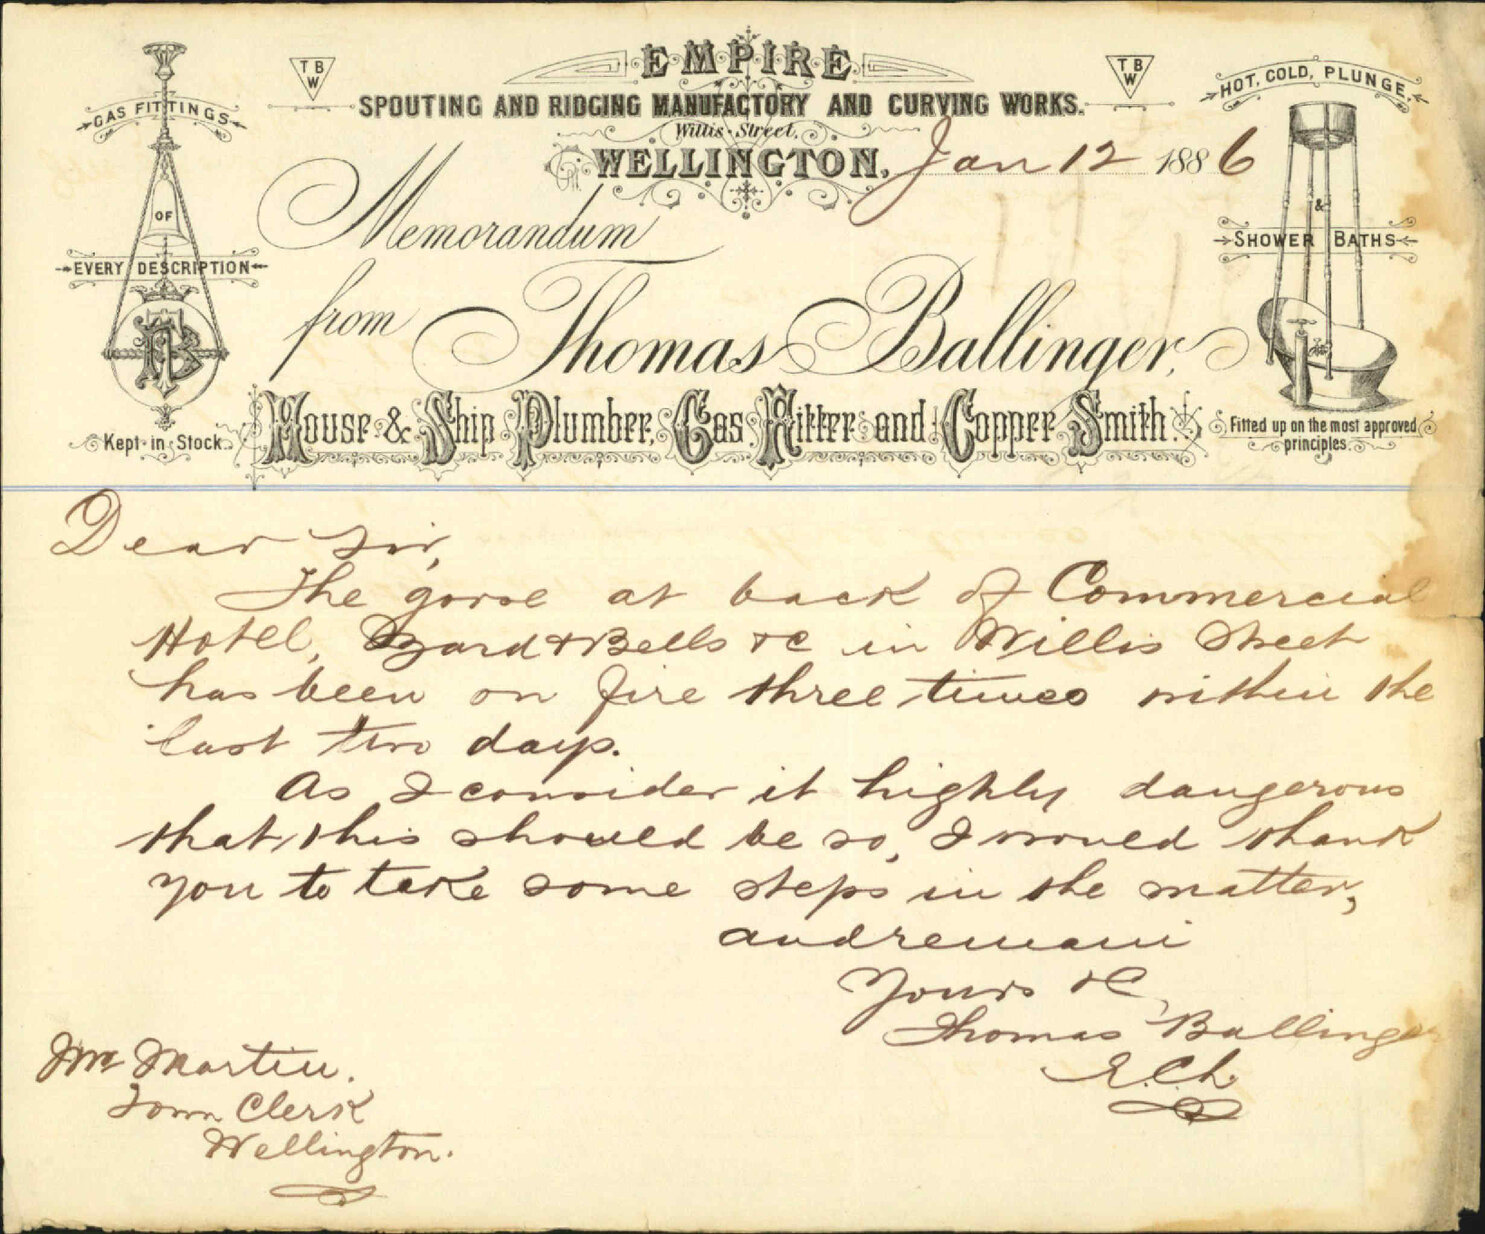 EMPIRE
SPOUTING AND RIDGING MANUFACTORY AND CURVING WORKS.
Willis Street,
WELLINGTON, Jan 12 1886
TBW
TBW
GAS FITTINGS
OF
EVERY DESCRIPTION
TB
Kept in Stock.
HOT, COLD, PLUNGE,
&
SHOWER BATHS
Fitted up on the most approved
principles.
Memorandum
from Thomas Ballinger,
House & Ship Plumber, Gas Fitter and Copper Smith.
Dear Sir,
The gorse at back of Commercial
Hotel, Bard & Bells &c in Willis Street
has been on fire three times within the
last two days.
As I consider it highly dangerous
that this should be so, I would thank
you to take some steps in the matter,
and remain
Yours &c,
Thomas Ballinger
E.Ch.
Mr Martin.
Town Clerk
Wellington.